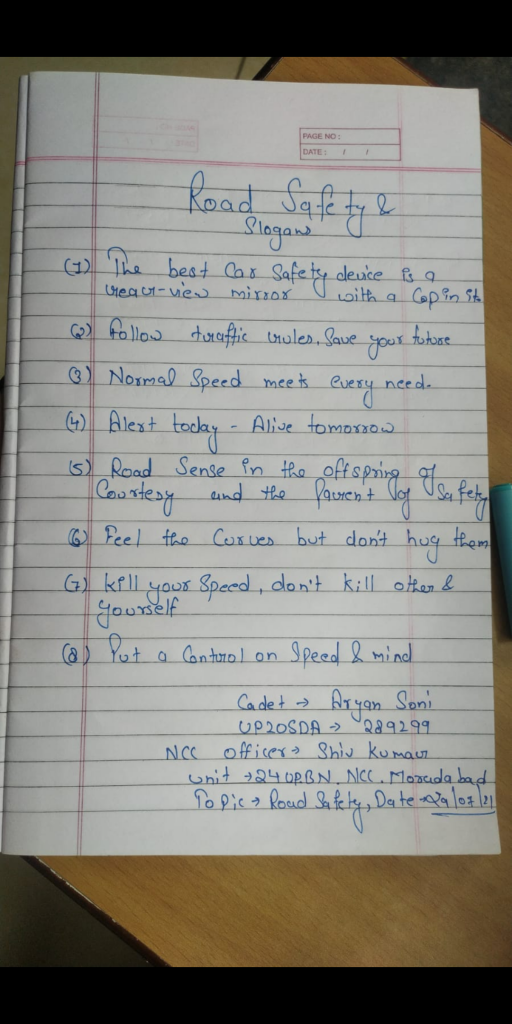 PAGE NO :
DATE : / /
Road Safety &
Slogans
(1) The best Car Safety device is a
rear-view mirror with a Cop in it
(2) Follow traffic rules, Save your future
(3) Normal Speed meets every need.
(4) Alert today - Alive tomorrow
(5) Road Sense in the offspring of
Courtesy and the Parent of Safety
(6) Feel the Curves but don't hug them
(7) Kill your Speed, don't kill other &
yourself
(8) Put a Control on Speed & mind
Cadet → Aryan Soni
UP20SDA → 289299
NCC Officer → Shiv Kumar
Unit → 24 UP.BN. NCC. Moradabad
Topic → Road Safety, Date → 29/07/21